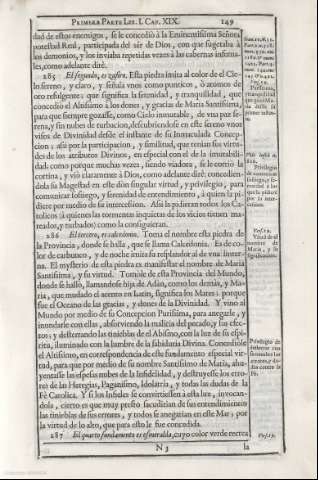 PRIMERA PARTE LIB. I. CAP. XIX. 149
dad de estos enemigos, se le concedió à la Eminentissima Señora
potestad Real, participada del ser de Dios, con que sugetaba à
los demonios, y los inviaba repetidas vezes à las cabernas inferna-
les, como adelante diré.
285 El segundo, es zafiro. Esta piedra imita al color de el Cie-
lo sereno, y claro, y señala vnos como punticos, ò atomos de
oro refulgentes: que significa la serenidad, y tranquilidad, que
concedio el Altissimo à los dones, y gracias de Maria Santissima,
para que siempre gozasse, como Cielo inmutable, de vna paz se-
rena, y sin nubes de turbacion, descubriendose en este sereno vnos
visos de Divinidad desde el instante de su Inmaculada Concep-
cion: assi por la participacion, y similitud, que tenian sus virtu-
des con los atributos Divinos, en especial con el de la inmutabili-
dad: como porque muchas vezes, siendo viadora, se le corriò la
cortina, y viò claramente à Dios, como adelante diré: concedien-
dola su Magestad en este dòn singular virtud, y privilegio, para
comunicar sossiego, y serenidad de entendimiento, à quien la pi-
diere por medio de su intercession. Assi la pidieran todos los Ca-
tolicos (à quienes las tormentas inquietas de los vicios tienen ma-
reados, y turbados) como la consiguieran.
286 El tercero, es calcedonia. Toma el nombre esta piedra de
la Provincia, donde se halla, que se llama Calcedonia. Es de co-
lor de carbunco, y de noche imita su resplandor al de vna linter-
na. El mysterio de esta piedra es manifestar el nombre de Maria
Santissima, y su virtud. Tomòle de esta Provincia del Mundo,
donde se hallò, llamandose hija de Adàn, como los demàs, y Ma-
ria, que mudado el acento en Latin, significa los Mares: porque
fue el Oceano de las gracias, y dones de la Divinidad. Y vino al
Mundo por medio de su Concepcion Purissima, para anegarle, y
inundarle con ellas, absorviendo la malicia del pecado, y sus efec-
tos: y desterrando las tinieblas de el Abismo, con la luz de su espi-
ritu, iluminado con la lumbre de la sabiduria Divina. Concediòle
el Altissimo, en correspondencia de este fundamento especial vir-
tud, para que por medio de su nombre Santissimo de Maria, ahu-
yentasse las espesas nubes de la infidelidad, y destruyesse los erro-
res de las Heregias, Paganismo, Idolatria, y todas las dudas de la
Fè Catolica. Y si los Infieles se convirtiessen à esta luz, invocan-
dola, cierto es que muy presto sacudirian de sus entendimientos
las tinieblas de sus errores, y todos se anegarian en este Mar; por
la virtud de lo alto, que para esto le fue concedida.
287 El quarto fundamento es esmeralda, cuyo color verde recrea
N 3 la